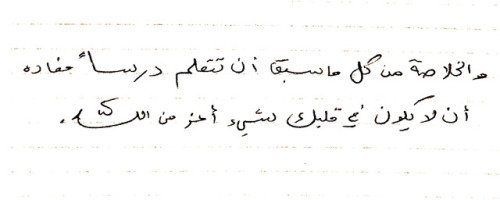 والخلاصة من كل ماسبق أن تتعلم درساً مفاده
أن لا يكون في قلبك شيء أعز من الله.